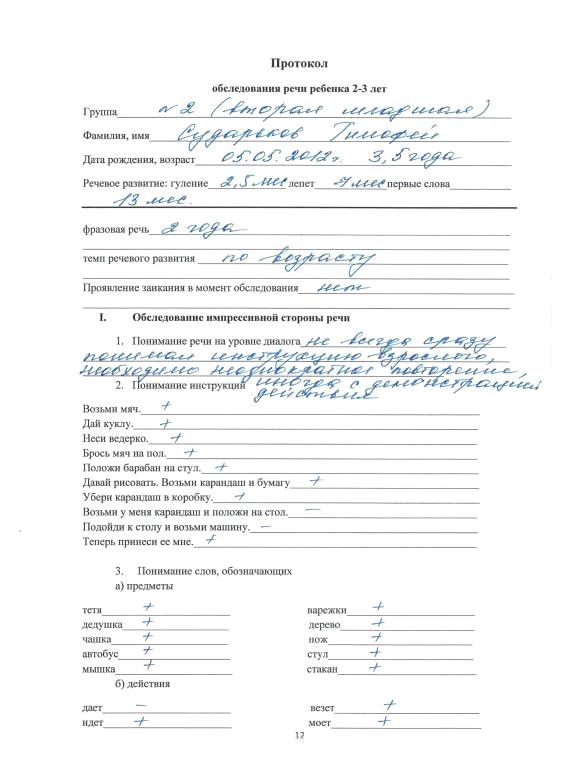 Протокол
обследования речи ребенка 2-3 лет
Группа № 2 (вторая младшая)
Фамилия, имя Сударьков Тимофей
Дата рождения, возраст 05.05.2012г. 3,5 года
Речевое развитие: гуление 2,5 мес лепет 7 мес первые слова
13 мес.
фразовая речь 2 года
темп речевого развития по возрасту
Проявление заикания в момент обследования нет
I. Обследование импрессивной стороны речи
1. Понимание речи на уровне диалога не всегда сразу
понимал инструкцию взрослого,
необходимо неоднократное повторение,
2. Понимание инструкций иногда с демонстрацией
действия
Возьми мяч. +
Дай куклу. +
Неси ведерко. +
Брось мяч на пол. +
Положи барабан на стул. +
Давай рисовать. Возьми карандаш и бумагу +
Убери карандаш в коробку. +
Возьми у меня карандаш и положи на стол. –
Подойди к столу и возьми машину. –
Теперь принеси ее мне. +
3. Понимание слов, обозначающих
а) предметы
тетя + варежки +
дедушка + дерево +
чашка + нож +
автобус + стул +
мышка + стакан +
б) действия
дает – везет +
идет + моет +
12